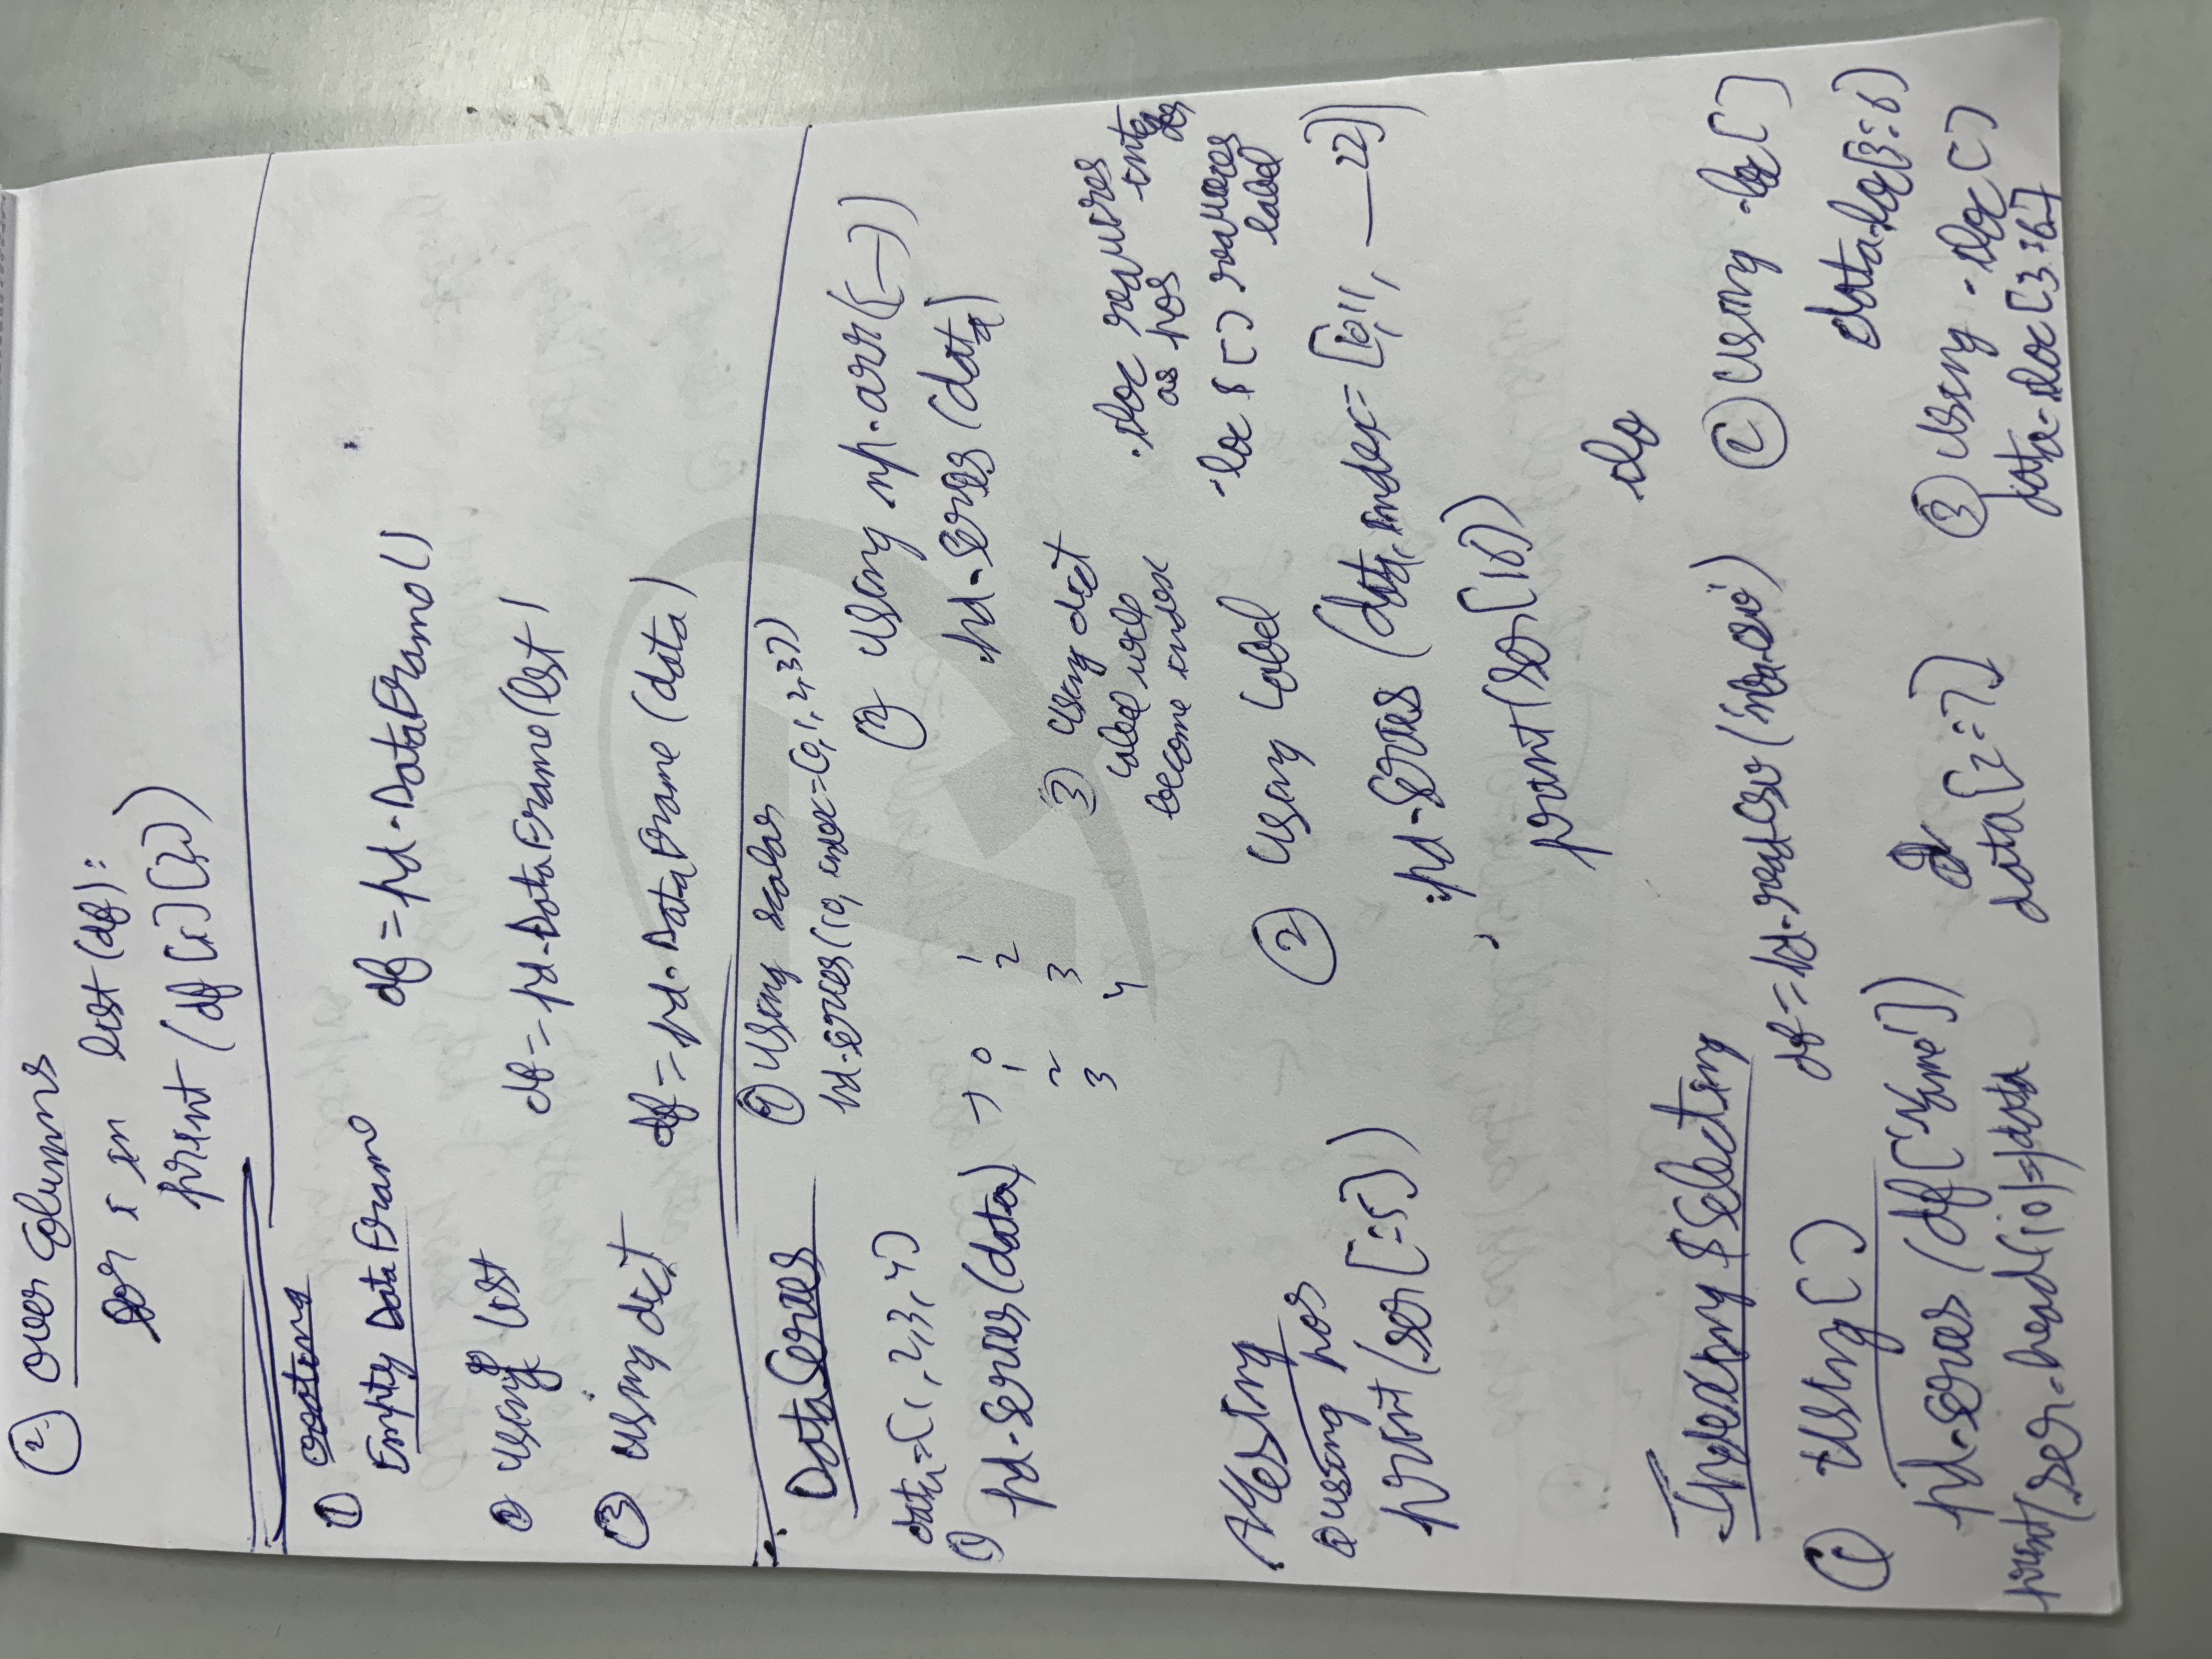 ② Over Columns
for i in list(df):
print (df[i][2])
①
Empty DataFrame df = pd.DataFrame()
② using list df = pd.DataFrame(lst)
③ using dict df = pd.DataFrame (data)
DataSeries
④ Using scalar
pd.series(10, index=[0,1,2,3])
data=[1,2,3,4]
① pd.Series(data) → 0 1
1 2
2 3
3 4
② using np.arr([—])
pd.series(data)
③ Using dict
label will
become index
.iloc requires
integer
as pos
.loc & [] requires
label
① using pos
print(ser[:5])
② Using Label
pd.Series (data, index=[10,11, __ 22])
print(ser[16])
ilo
Indexing & Selecting
df = pd.read_csv('nba.csv')
① Using []
pd.series (df['Name'])
print(ser.head(10)=)data
data[2:7]
② Using .loc[]
data.loc[3:6]
③ Using .iloc[]
data.iloc[3:6]